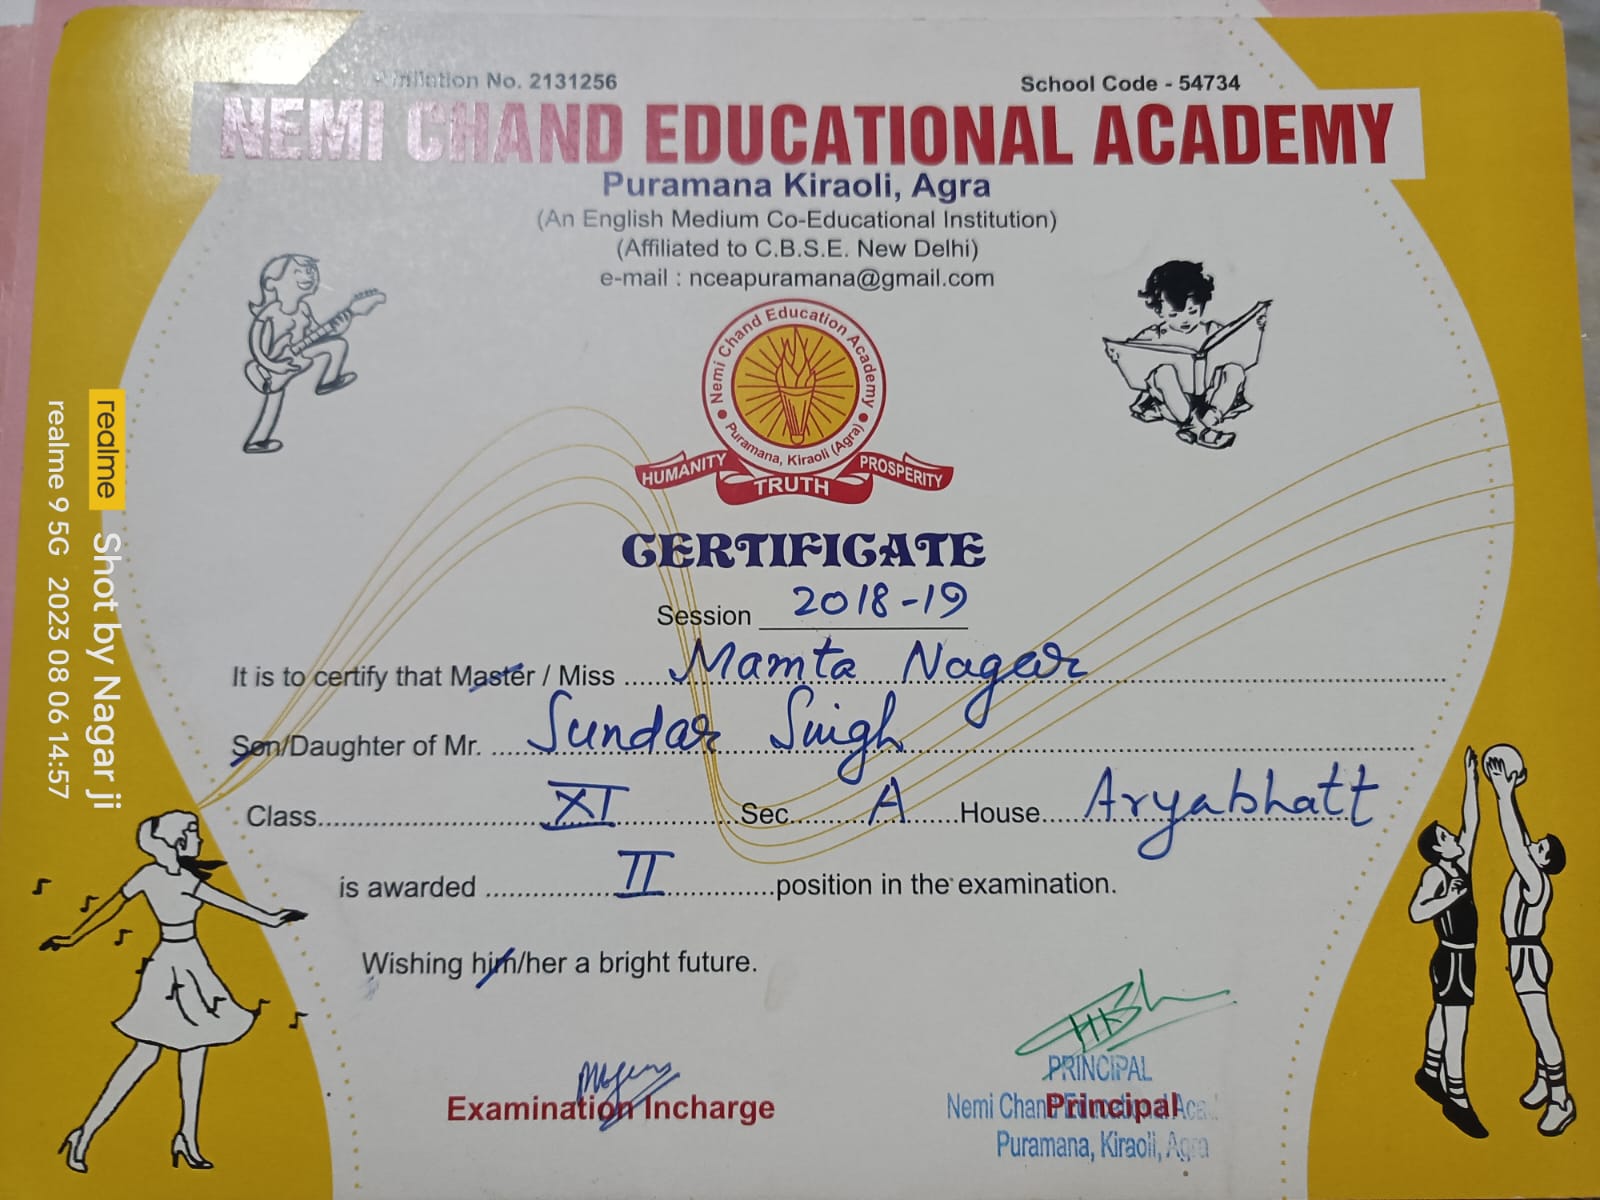 Affiliation No. 2131256
School Code - 54734
NEMI CHAND EDUCATIONAL ACADEMY
Puramana Kiraoli, Agra
(An English Medium Co-Educational Institution)
(Affiliated to C.B.S.E. New Delhi)
e-mail : nceapuramana@gmail.com
Nemi Chand Education Academy
Puramana, Kiraoli (Agra)
HUMANITY TRUTH PROSPERITY
CERTIFICATE
Session 2018-19
It is to certify that Master / Miss Mamta Nagar
Son/Daughter of Mr. Sundar Singh
Class XI Sec. A House Aryabhatt
is awarded II position in the examination.
Wishing him/her a bright future.
Examination Incharge
PRINCIPAL
Nemi Chand Educational Aca
Principal
Puramana, Kiraoli, Agra
realme Shot by Nagar ji
realme 9 5G 2023 08 06 14:57